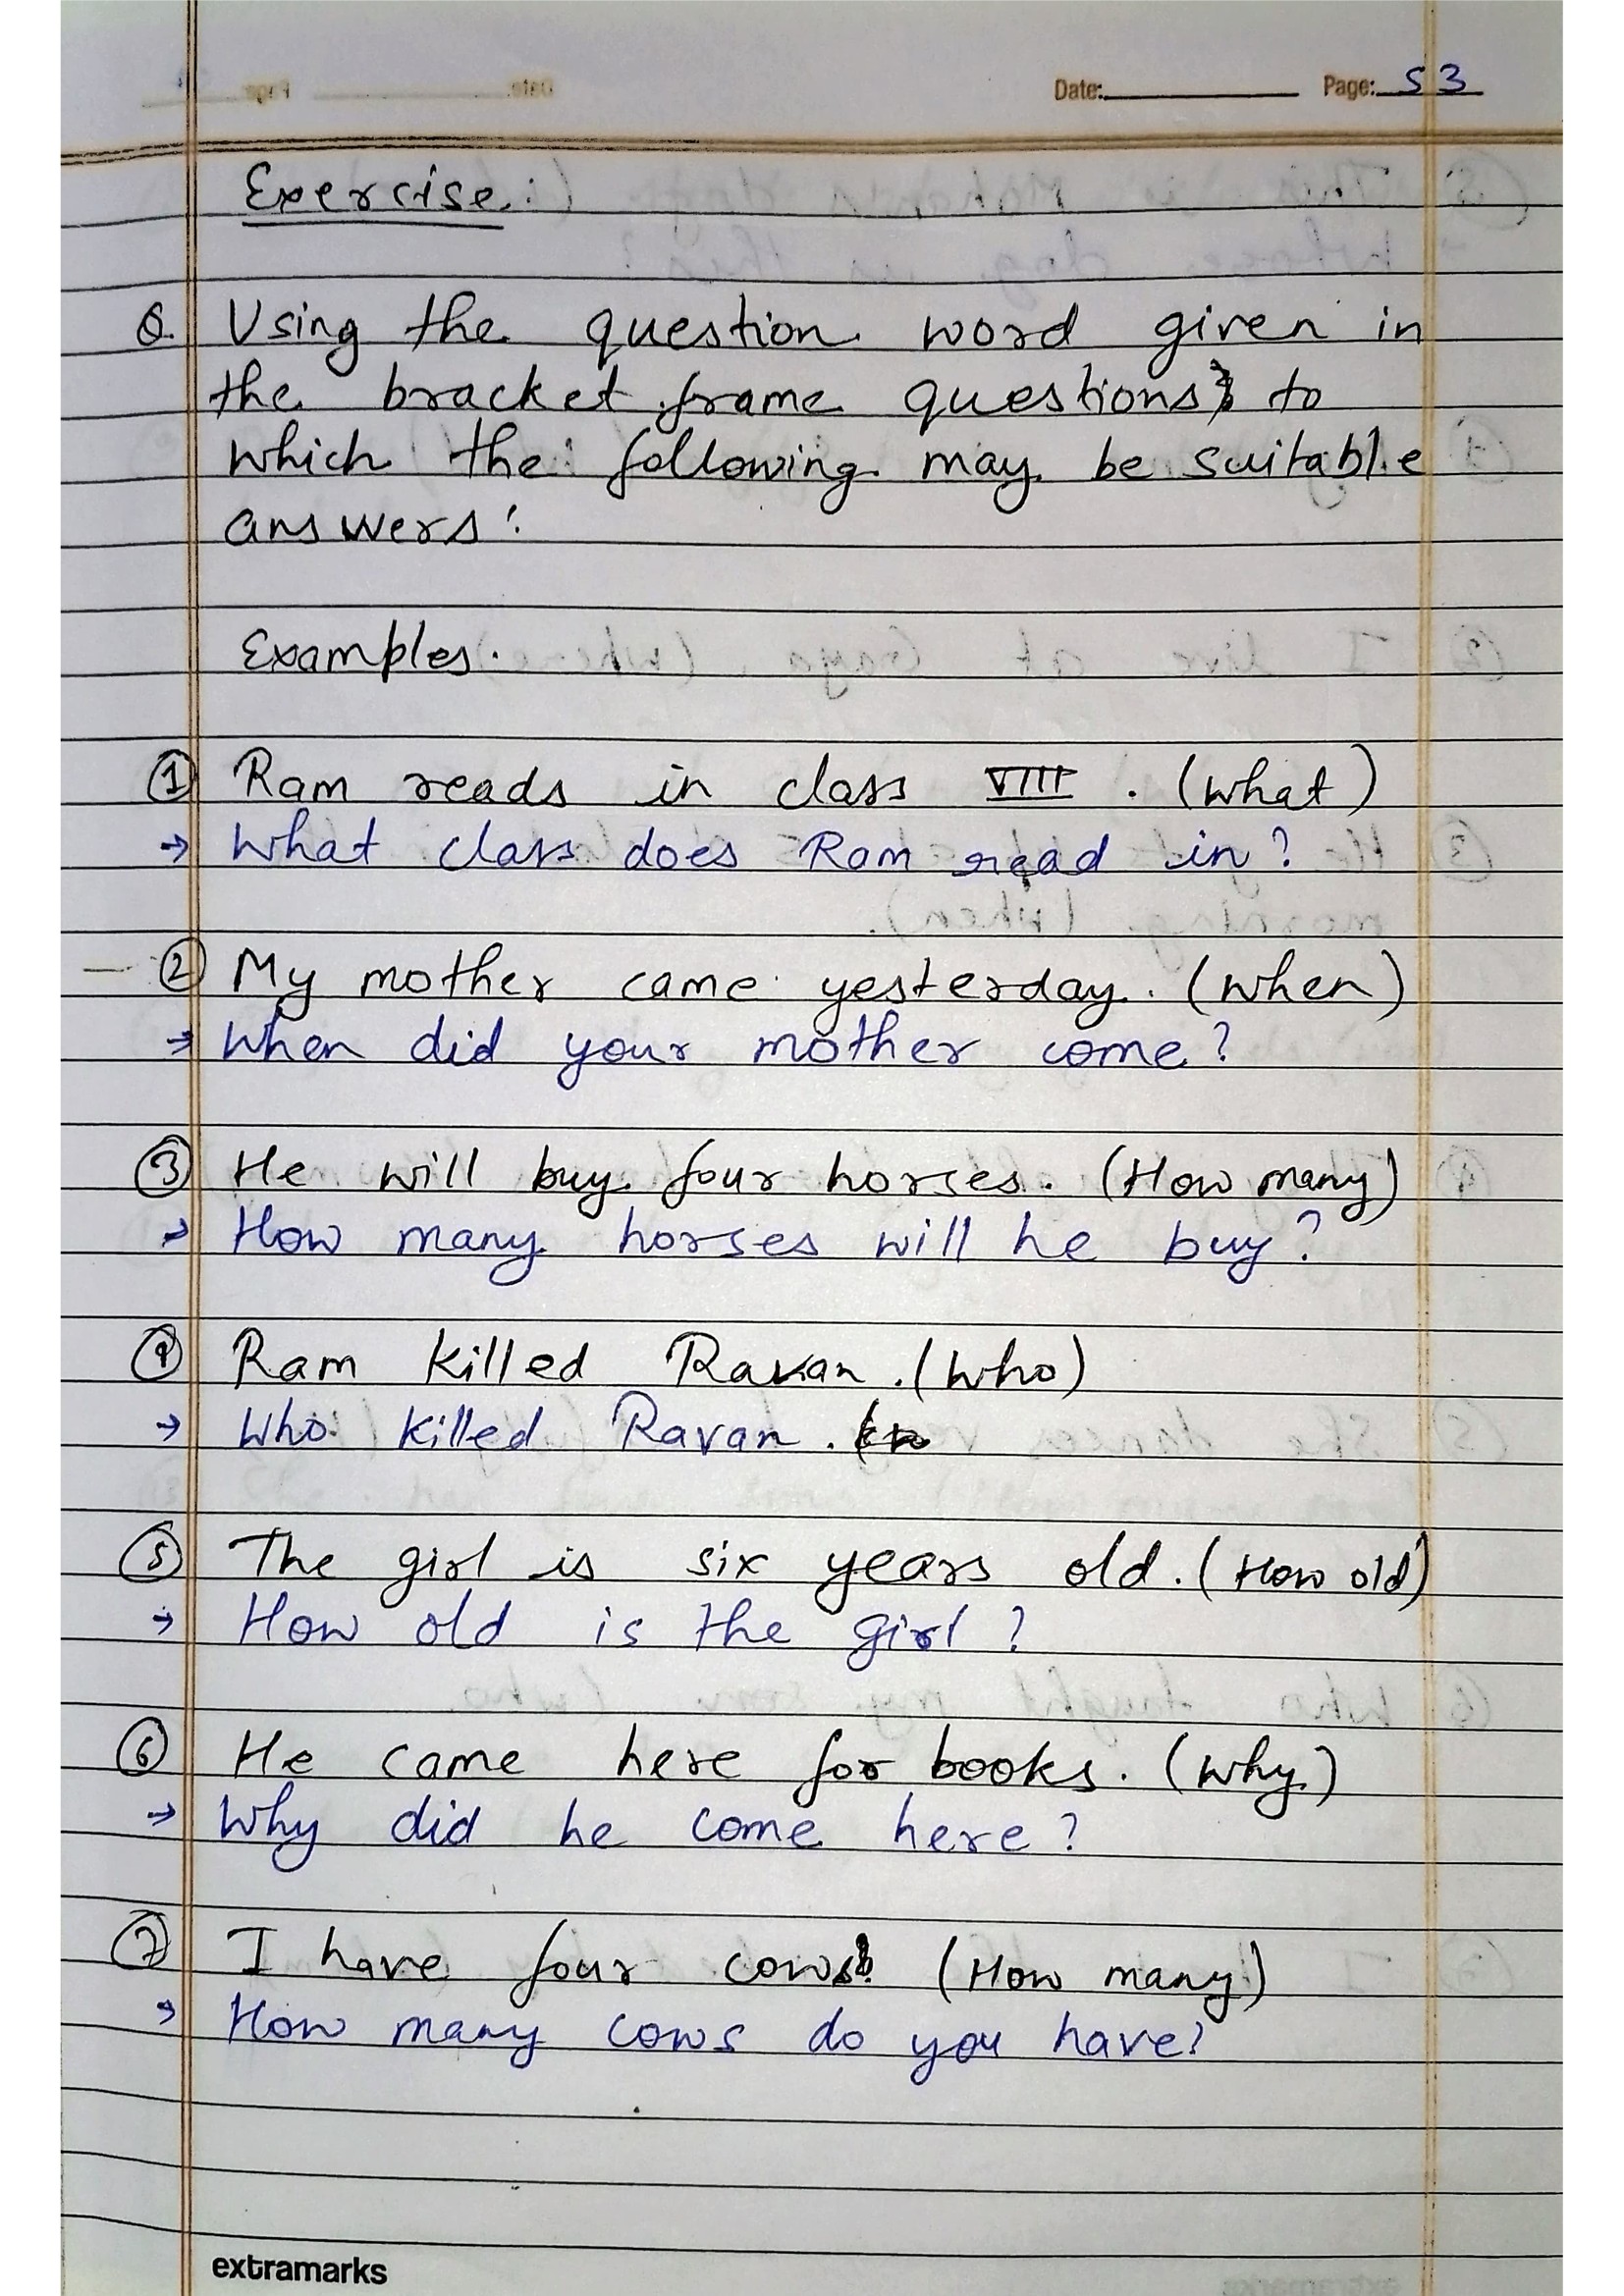 Date: Page: 53
Exercise :
Q. Using the question word given in
the bracket frame questions to
which the following may be suitable
answers :
Examples.
① Ram reads in class VIII . (what)
→ What class does Ram read in ?
② My mother came yesterday. (when)
→ When did your mother come ?
③ He will buy four horses. (How many)
→ How many horses will he buy ?
④ Ram killed Ravan . (who)
→ Who killed Ravan .
⑤ The girl is six years old. (How old)
→ How old is the girl ?
⑥ He came here for books. (why)
→ Why did he come here ?
⑦ I have four cows. (How many)
→ How many cows do you have?
extramarks